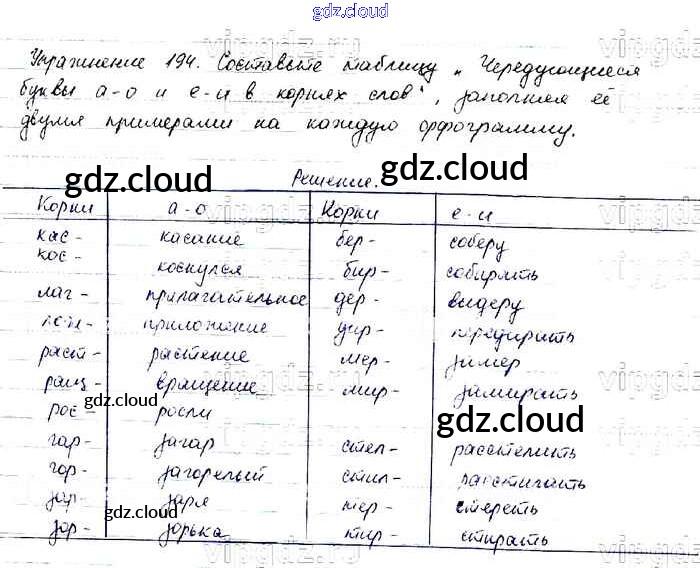 gdz.cloud
Упражнение 194. Составьте таблицу „Чередующиеся
буквы а-о и е-и в корнях слов", заполняя её
двумя примерами на каждую орфограмму.
gdz.cloud gdz.cloud
Решение.
Корни а-о Корни е-и
кас- касание бер- соберу
кос- коснулся бир- собирать
лаг- прилагательное дер- выдеру
приложение дир-
раст- растение мер- замер
ращ- вращение мир- замирать
gdz.cloud
рос- росли
gdz.cloud
гар- загар стел- расстелить
гор- загорелый стил-
заря тер- стереть
gdz.cloud
зор- зорька тир- стирать